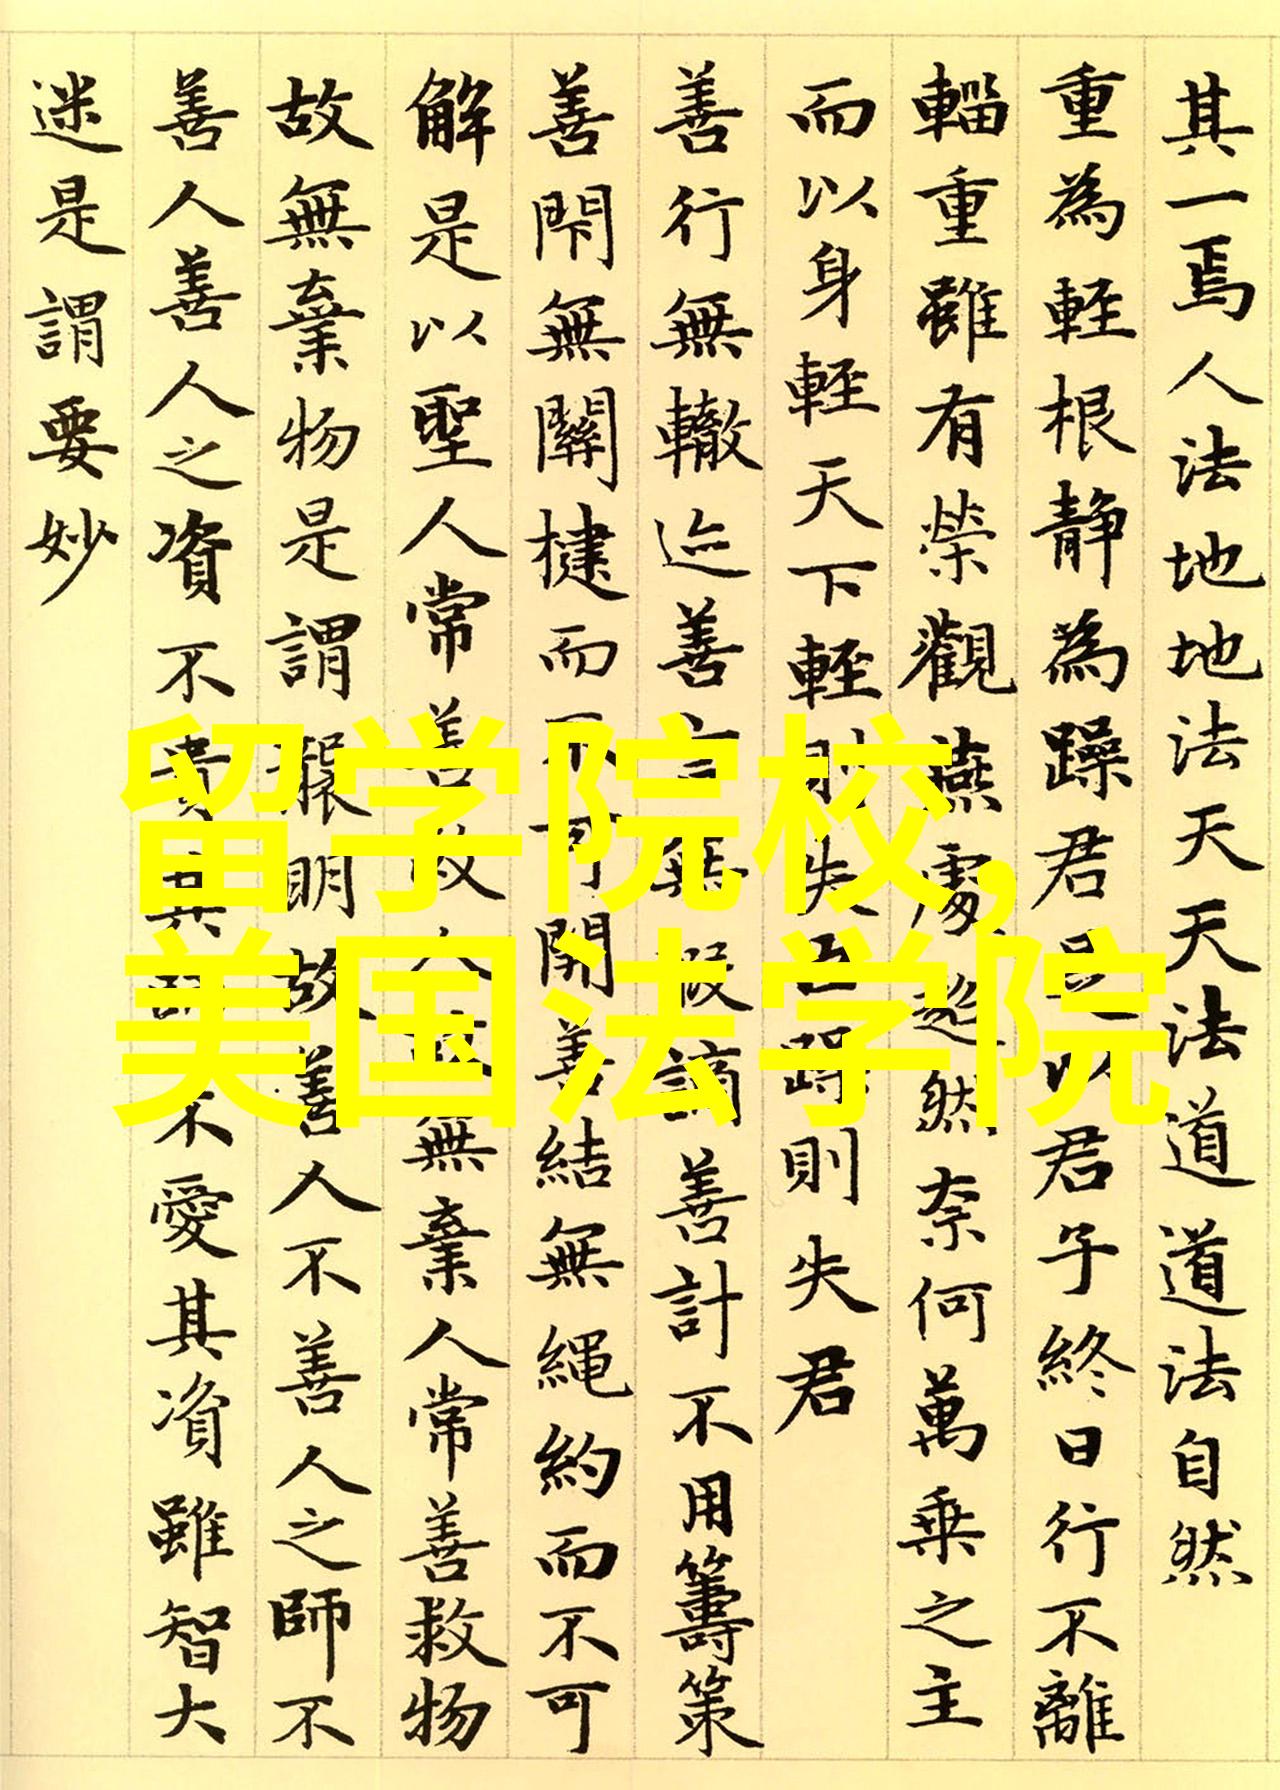 其一焉人法地地法天天法道道法自然
重為輕根静為躁君是以君子終日行不離
輜重雖有榮觀燕處超然奈何萬乘之主
而以身輕天下輕則失臣躁則失君
善行無轍迹善言無瑕謫善計不用籌策
善閇無關楗而不可開善結無繩約而不可
解是以聖人常善救人故無棄人常善救物
故無棄物是謂襲明故善人不善人之師不
善人善人之資不貴其師不愛其資雖智大
迷是謂要妙
留学院校,
美国法学院